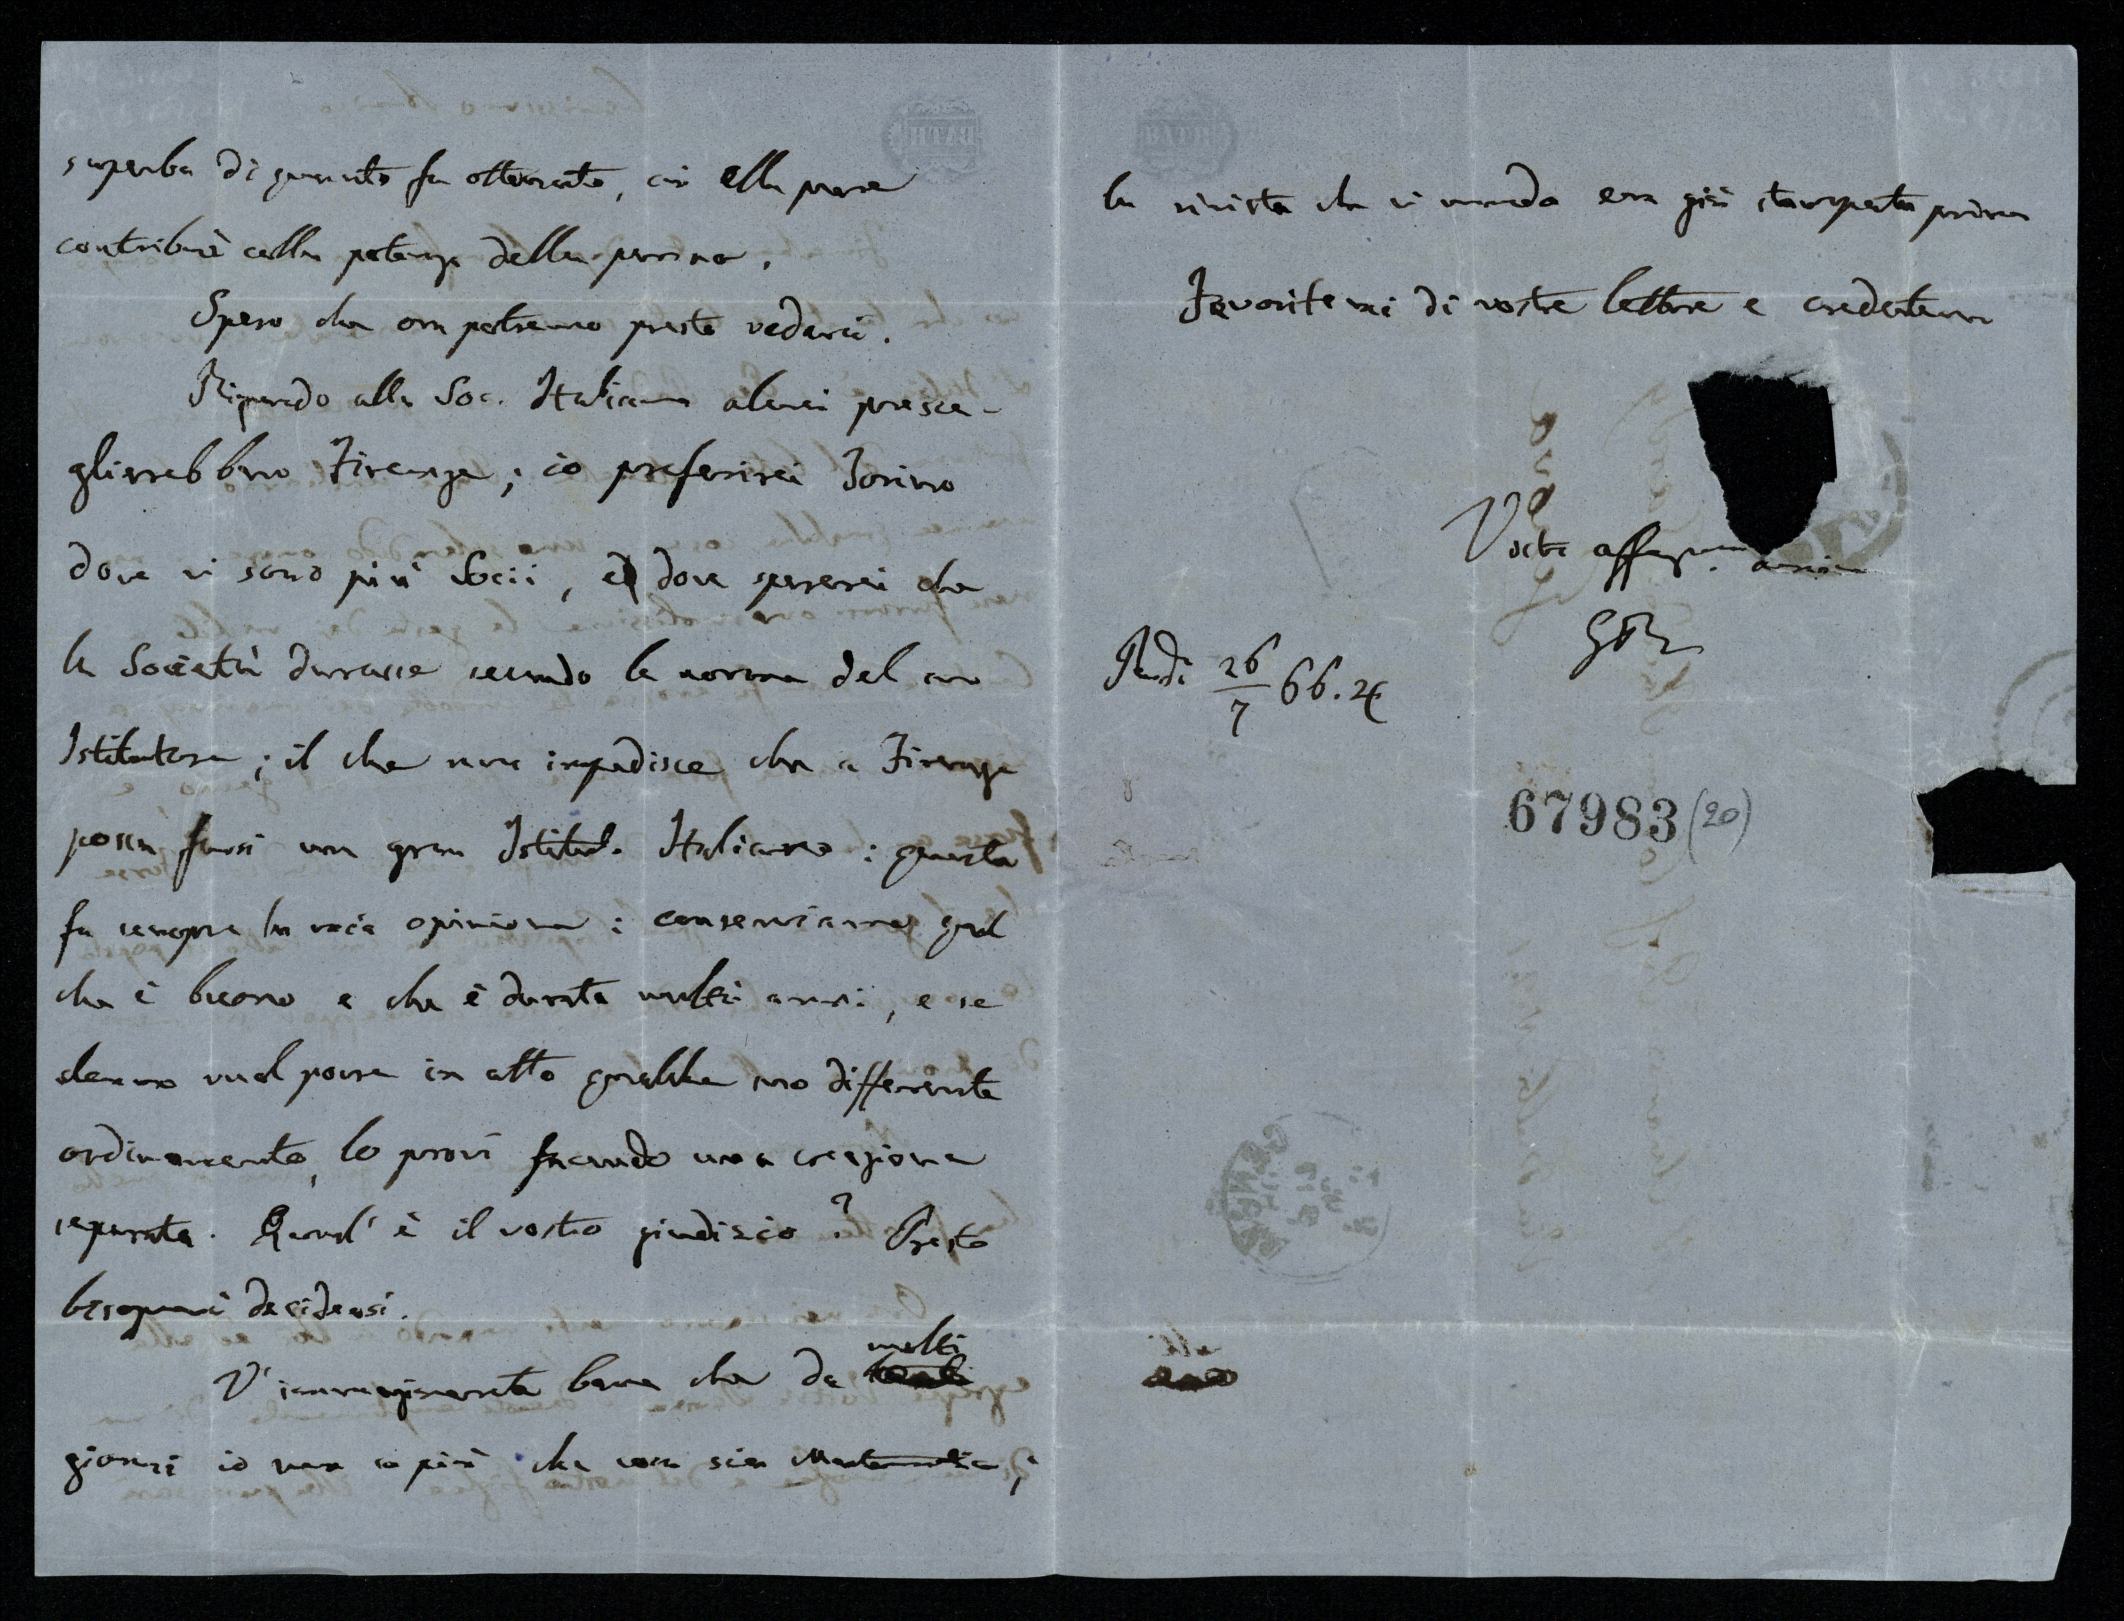 superba di quanto fu ottenuto, cui ella pure
contribuì colla potenza della penna.
Spero che ora potremo presto vederci.
Riguardo alla Soc. Italiana alcuni presce-
glierebbero Firenze; io preferirei Torino
dove vi sono più Socii, e dove spererei che
la Società durasse secondo le norme del suo
Istitutore; il che non impedisce che a Firenze
possa farsi un gran Istituto Italiano: questa
fu sempre la mia opinione: conserviamo quel
che è buono e che è durato molti anni, e se
alcuno vuol porre in atto qualche suo differente
ordinamento, lo provi facendo una creazione
separata. Qual' è il vostro giudizio? Presto
bisognerà decidersi.
V' immaginerete bene che da molti
giorni io non so più che cosa sia Matematica;
la rivista che vi mando era già stampata prima
Favoritemi di vostre lettere e credetemi
Vostr affez. amico
26/7 66.
67983 (20)
BATH